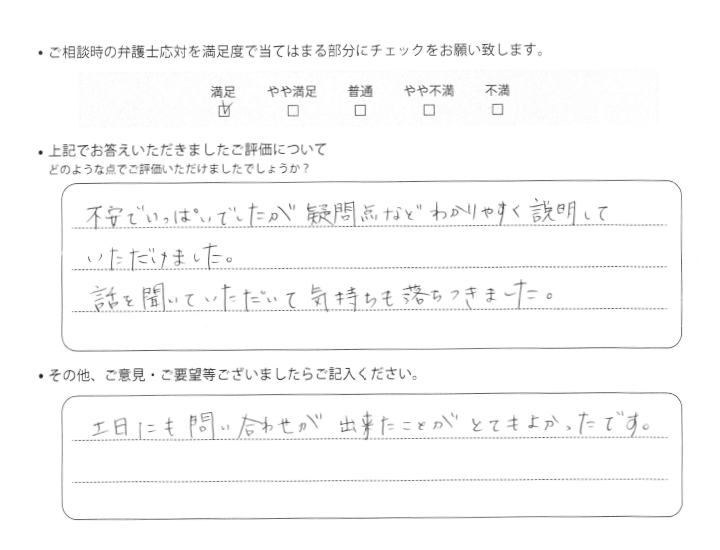 • ご相談時の弁護士応対を満足度で当てはまる部分にチェックをお願い致します。
満足 やや満足 普通 やや不満 不満
☑ □ □ □ □
• 上記でお答えいただきましたご評価について
どのような点でご評価いただけましたでしょうか？
不安でいっぱいでしたが 疑問点など わかりやすく 説明して
いただけました。
話を聞いていただいて 気持ちも 落ちつきました。
• その他、ご意見・ご要望等ございましたらご記入ください。
土日にも 問い合わせが 出来たことが とてもよかったです。